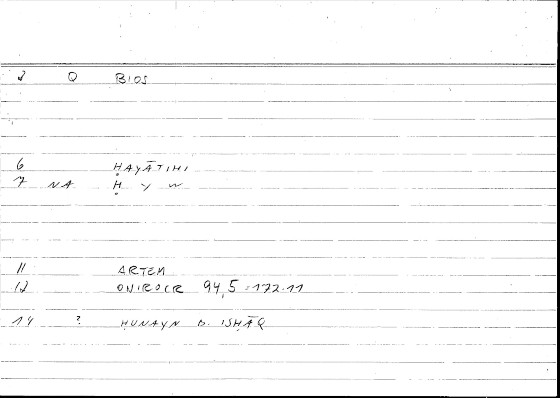 2 Q BIOS
6 ḤAYĀTIHI
7 NA Ḥ Y W
11 ARTEM
12 ONIROCR 94,5 = 172.11
14 ? ḤUNAYN B. ISḤĀQ